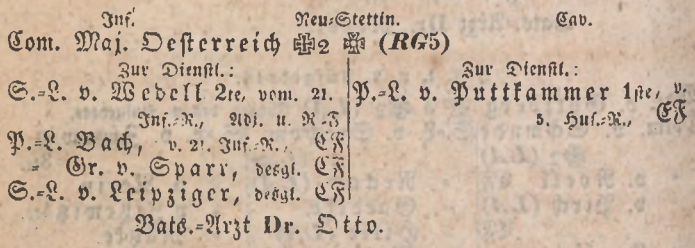 Inf. Neu-Stettin. Cav.
Com. Maj. Oesterreich ✠2 ✠ (RG5)
Zur Dienstl.:
S.-L. v. Wedell 2te, vom. 21.
Inf.-R., Adj. u. R-F
P.-L. Bach, v. 21. Inf.-R., CF
- Gr. v. Sparr, desgl. CF
S.-L. v. Leipziger, desgl. CF
Zur Dienstl.:
P.-L. v. Puttkammer 1ste, v.
5. Hus.-R., CF
Bats.-Arzt Dr. Otto.